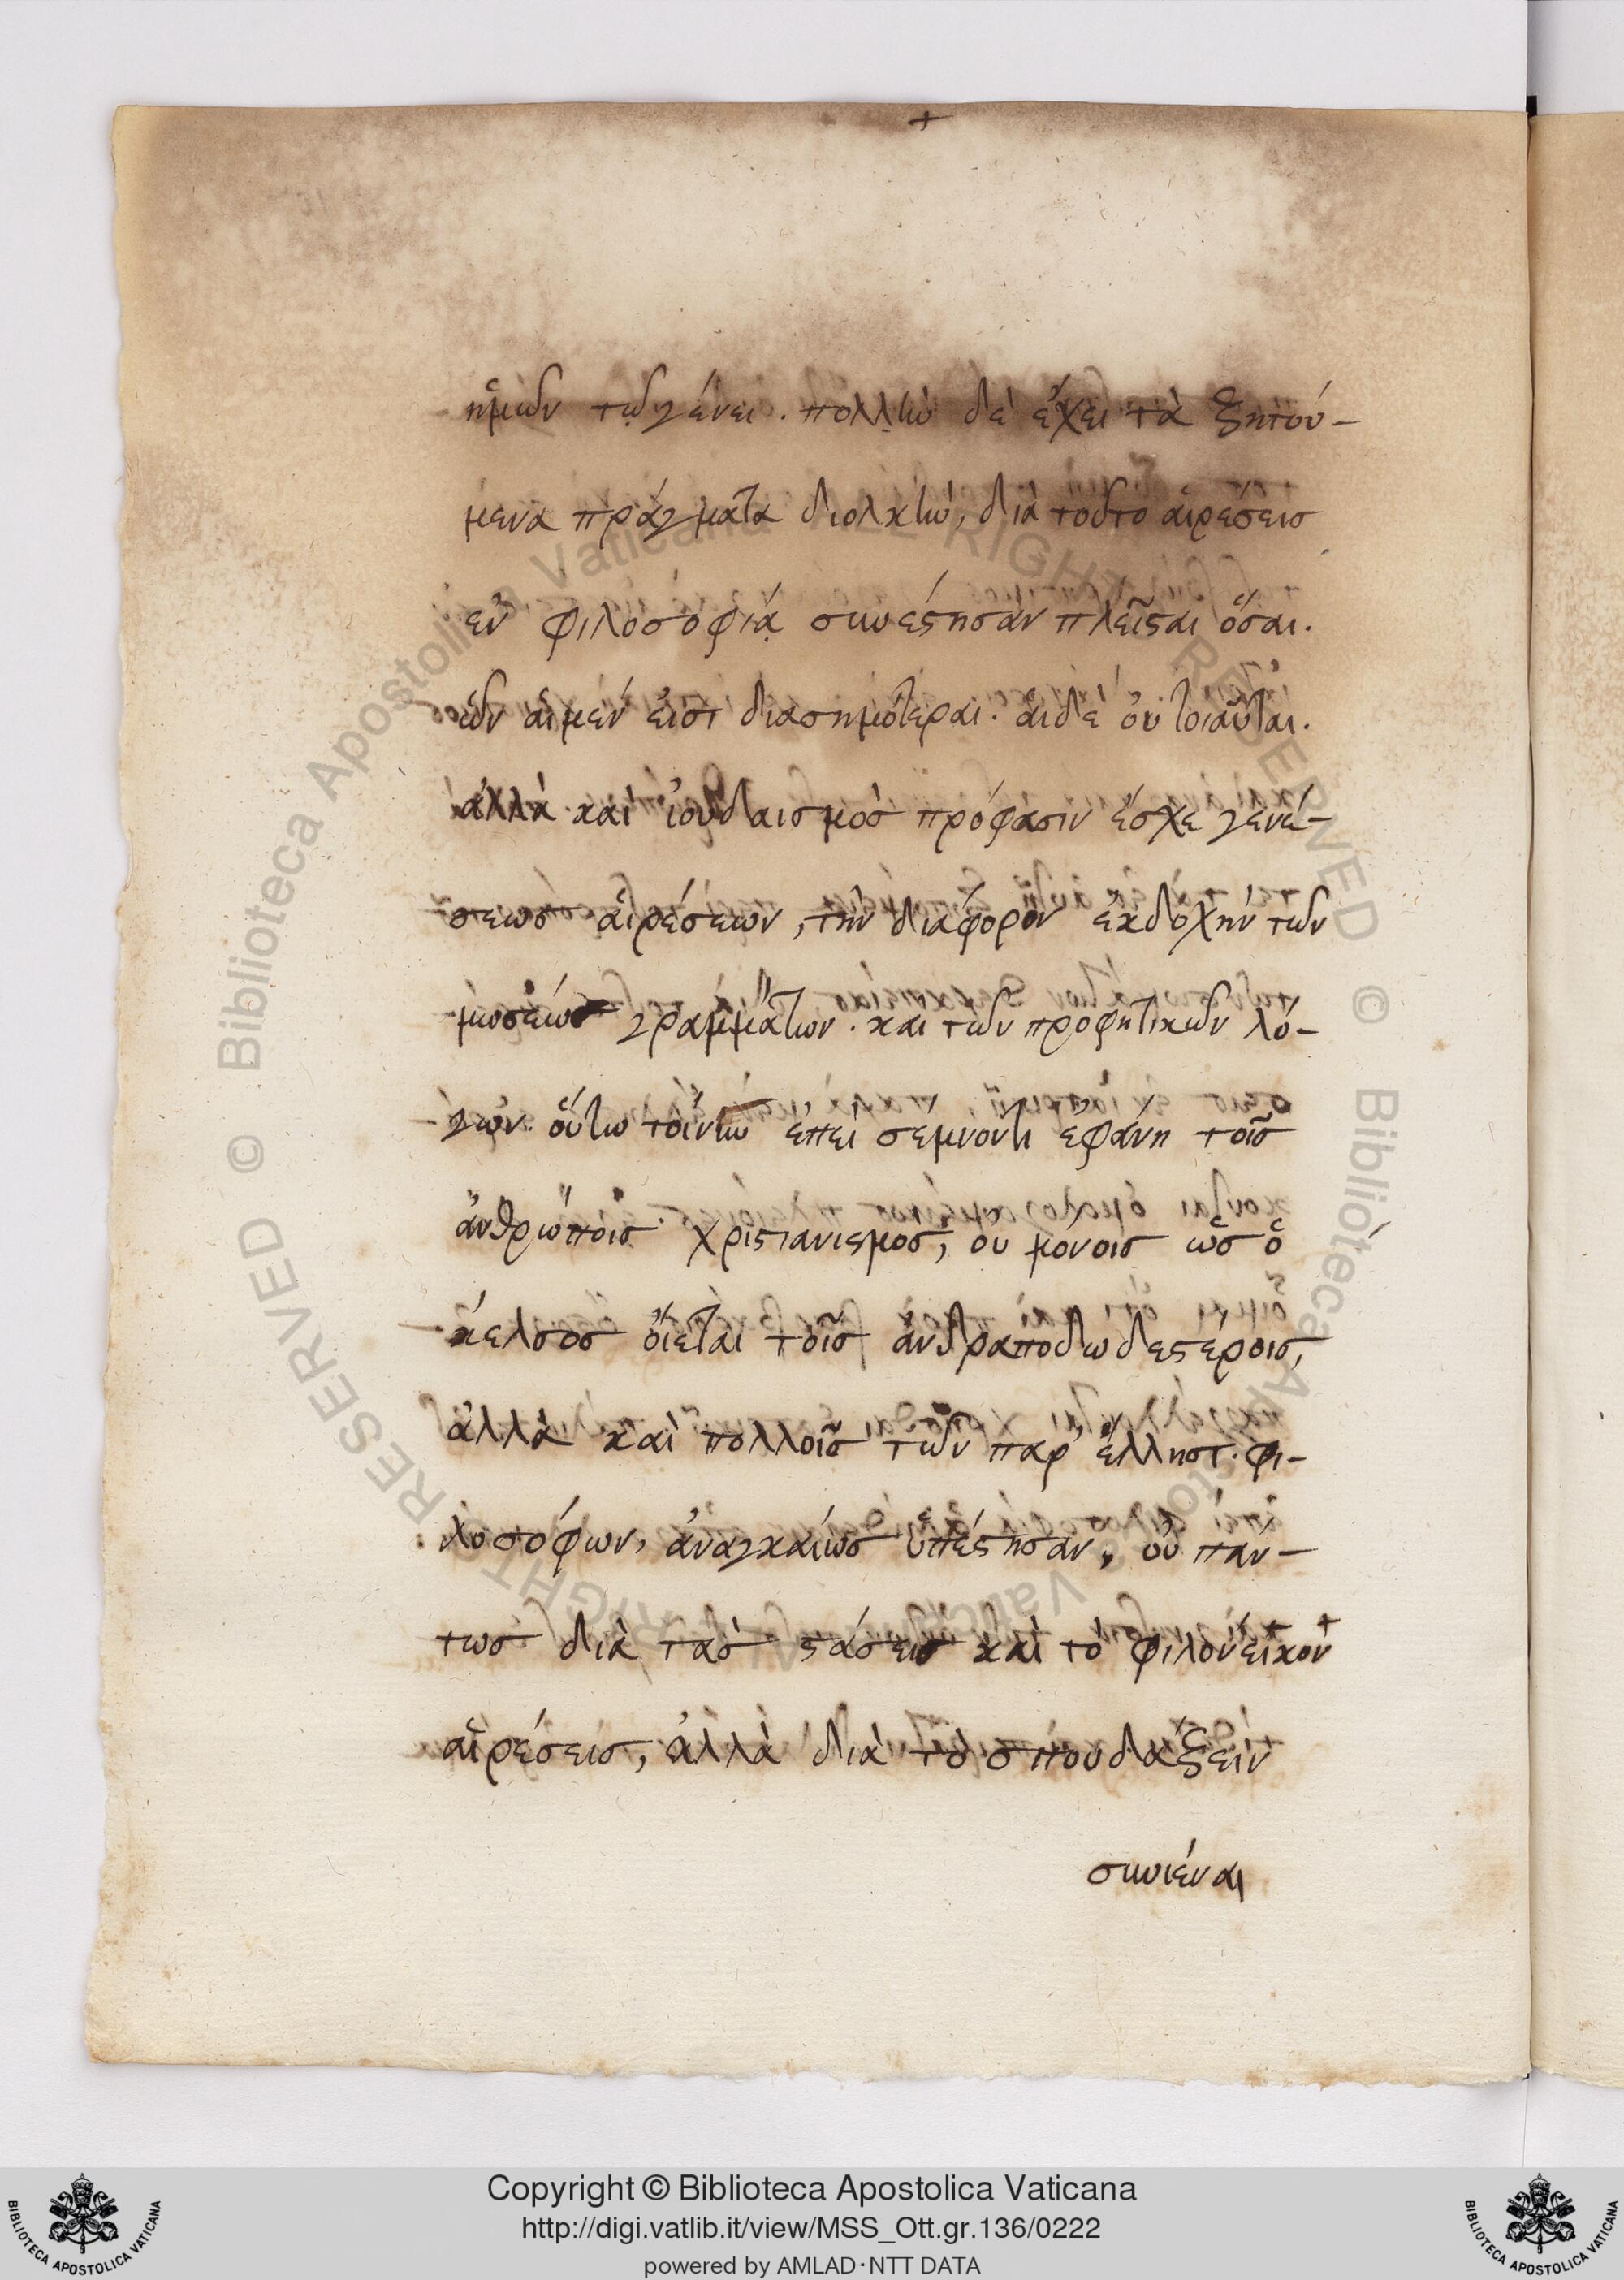 ἡμῶν τῷ γένει. πολλὴν δὲ ἔχει τὰ ζητού-
μενα πράγματα διολκὴν, διὰ τοῦτο αἱρέσεις
ἐν φιλοσοφίᾳ συνέστησαν πλεῖσται ὅσαι.
ὧν αἱ μέν εἰσι διασημότεραι. αἱ δὲ οὐ τοιαῦται.
ἀλλὰ καὶ ἰουδαισμὸς πρόφασιν ἔσχε γενέ-
σεως αἱρέσεων, τὴν διάφορον ἐκδοχὴν τῶν
μωσέως γραμμάτων. καὶ τῶν προφητικῶν λό-
γων. οὕτω τοίνυν ἐπεὶ σεμνόν τι ἐφάνη τοῖς
ἀνθρώποις χριστιανισμὸς, οὐ μόνοις ὡς ὁ
κέλσος οἴεται τοῖς ἀνδραποδωδεστέροις,
ἀλλὰ καὶ πολλοῖς τῶν παρ' ἕλλησι. φι-
λοσόφων, ἀναγκαίως ὑπέστησαν, οὐ πάν-
τως διὰ τὰς στάσεις καὶ τὸ φιλόνεικον
αἱρέσεις, ἀλλὰ διὰ τὸ σπουδάζειν
συνιέναι
Copyright © Biblioteca Apostolica Vaticana
http://digi.vatlib.it/view/MSS_Ott.gr.136/0222
powered by AMLAD·NTT DATA
BIBLIOTECA APOSTOLICA VATICANA
BIBLIOTECA APOSTOLICA VATICANA
© Biblioteca Apostolica Vaticana ALL RIGHTS RESERVED © Biblioteca Apostolica Vaticana ALL RIGHTS RESERVED